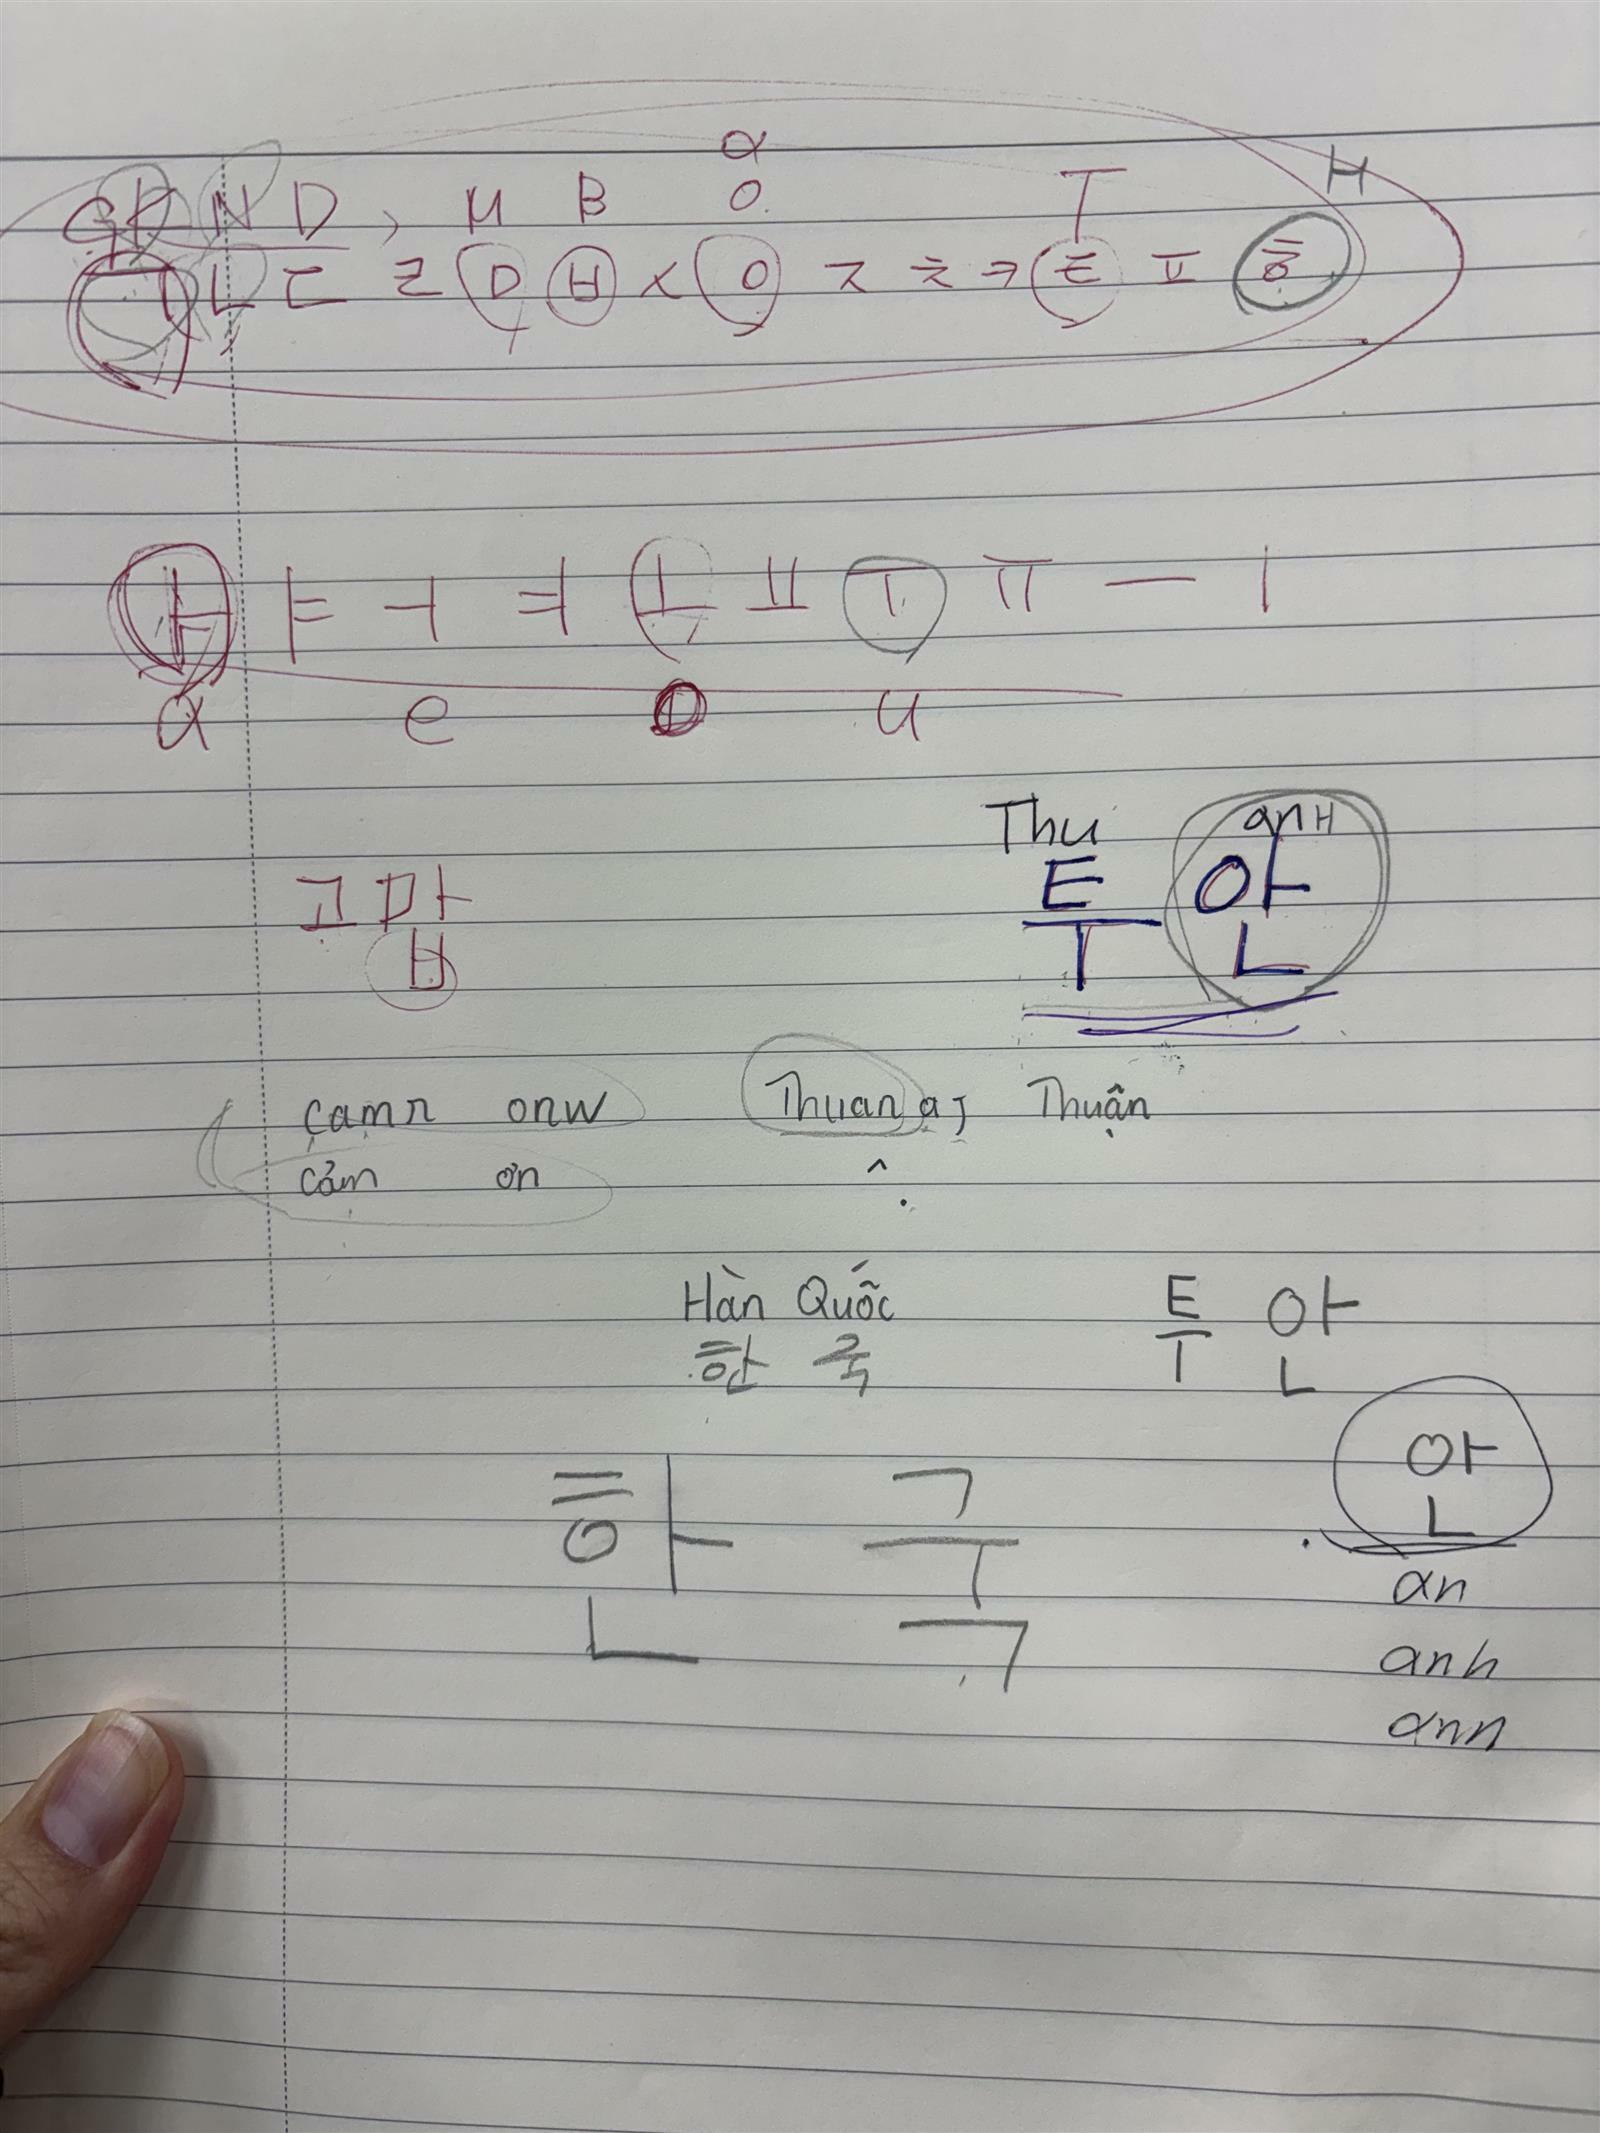 α
GK N D , M B O T H
ㄱ ㄴ ㄷ ㄹ ㅁ ㅂ ㅅ ㅇ ㅈ ㅊ ㅋ ㅌ ㅍ ㅎ
ㅏ ㅑ ㅓ ㅕ ㅗ ㅛ ㅜ ㅠ ㅡ ㅣ
a e O u
Thu anH
고맙 투 안
camr onw Thuanaj Thuận
cảm ơn ^ .
Hàn Quốc
한 국 투 안
한 국 안
an
anh
ann